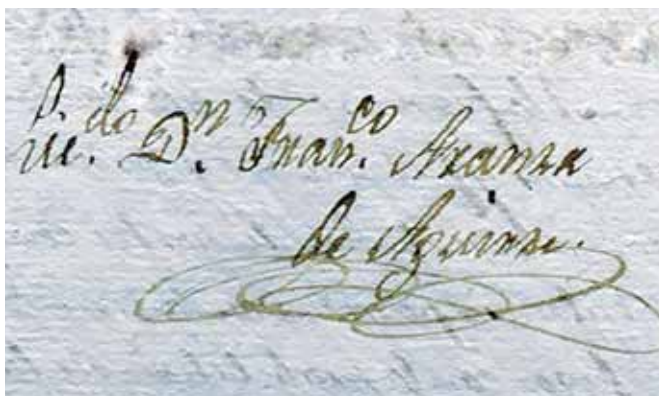 Dⁿ. Fran.ᶜᵒ Aranza
de Aguirre.